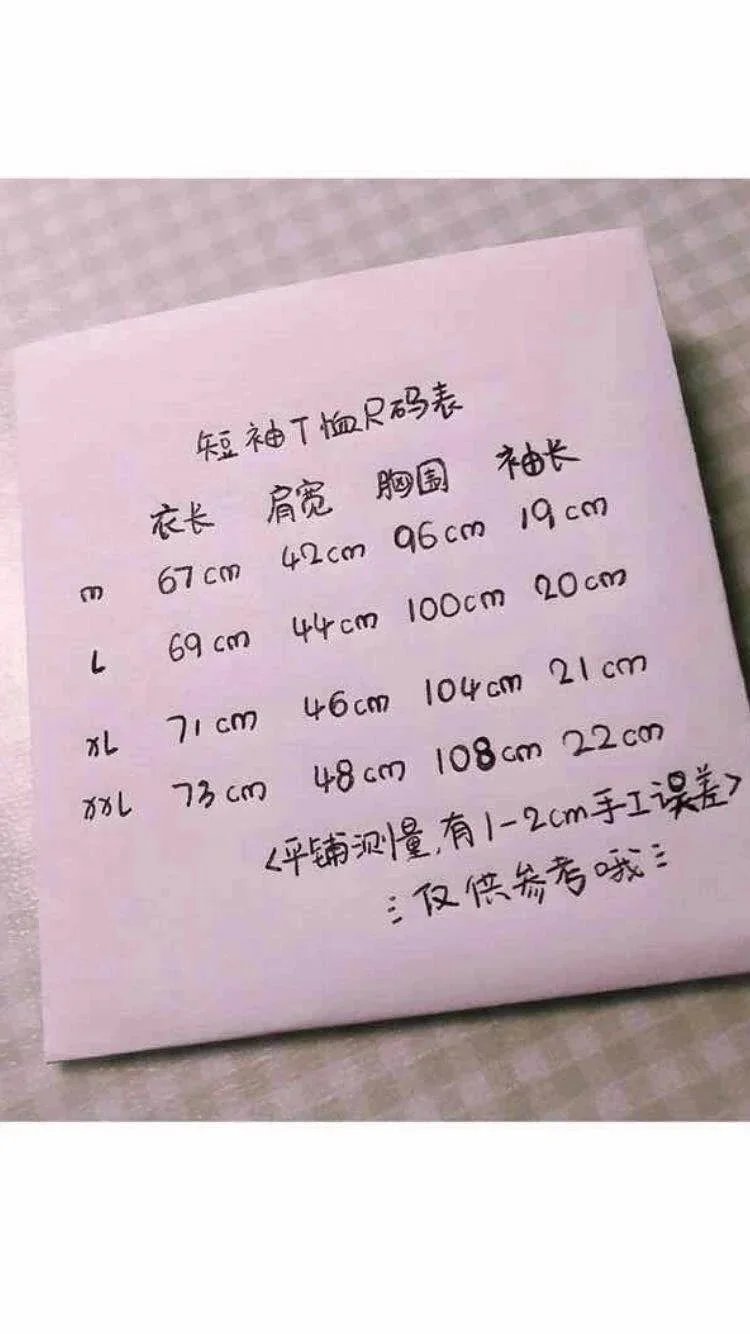 短袖T恤尺码表
衣长 肩宽 胸围 袖长
m 67cm 42cm 96cm 19cm
L 69cm 44cm 100cm 20cm
XL 71cm 46cm 104cm 21cm
XXL 73cm 48cm 108cm 22cm
<平铺测量,有1-2cm手工误差>
仅供参考哦